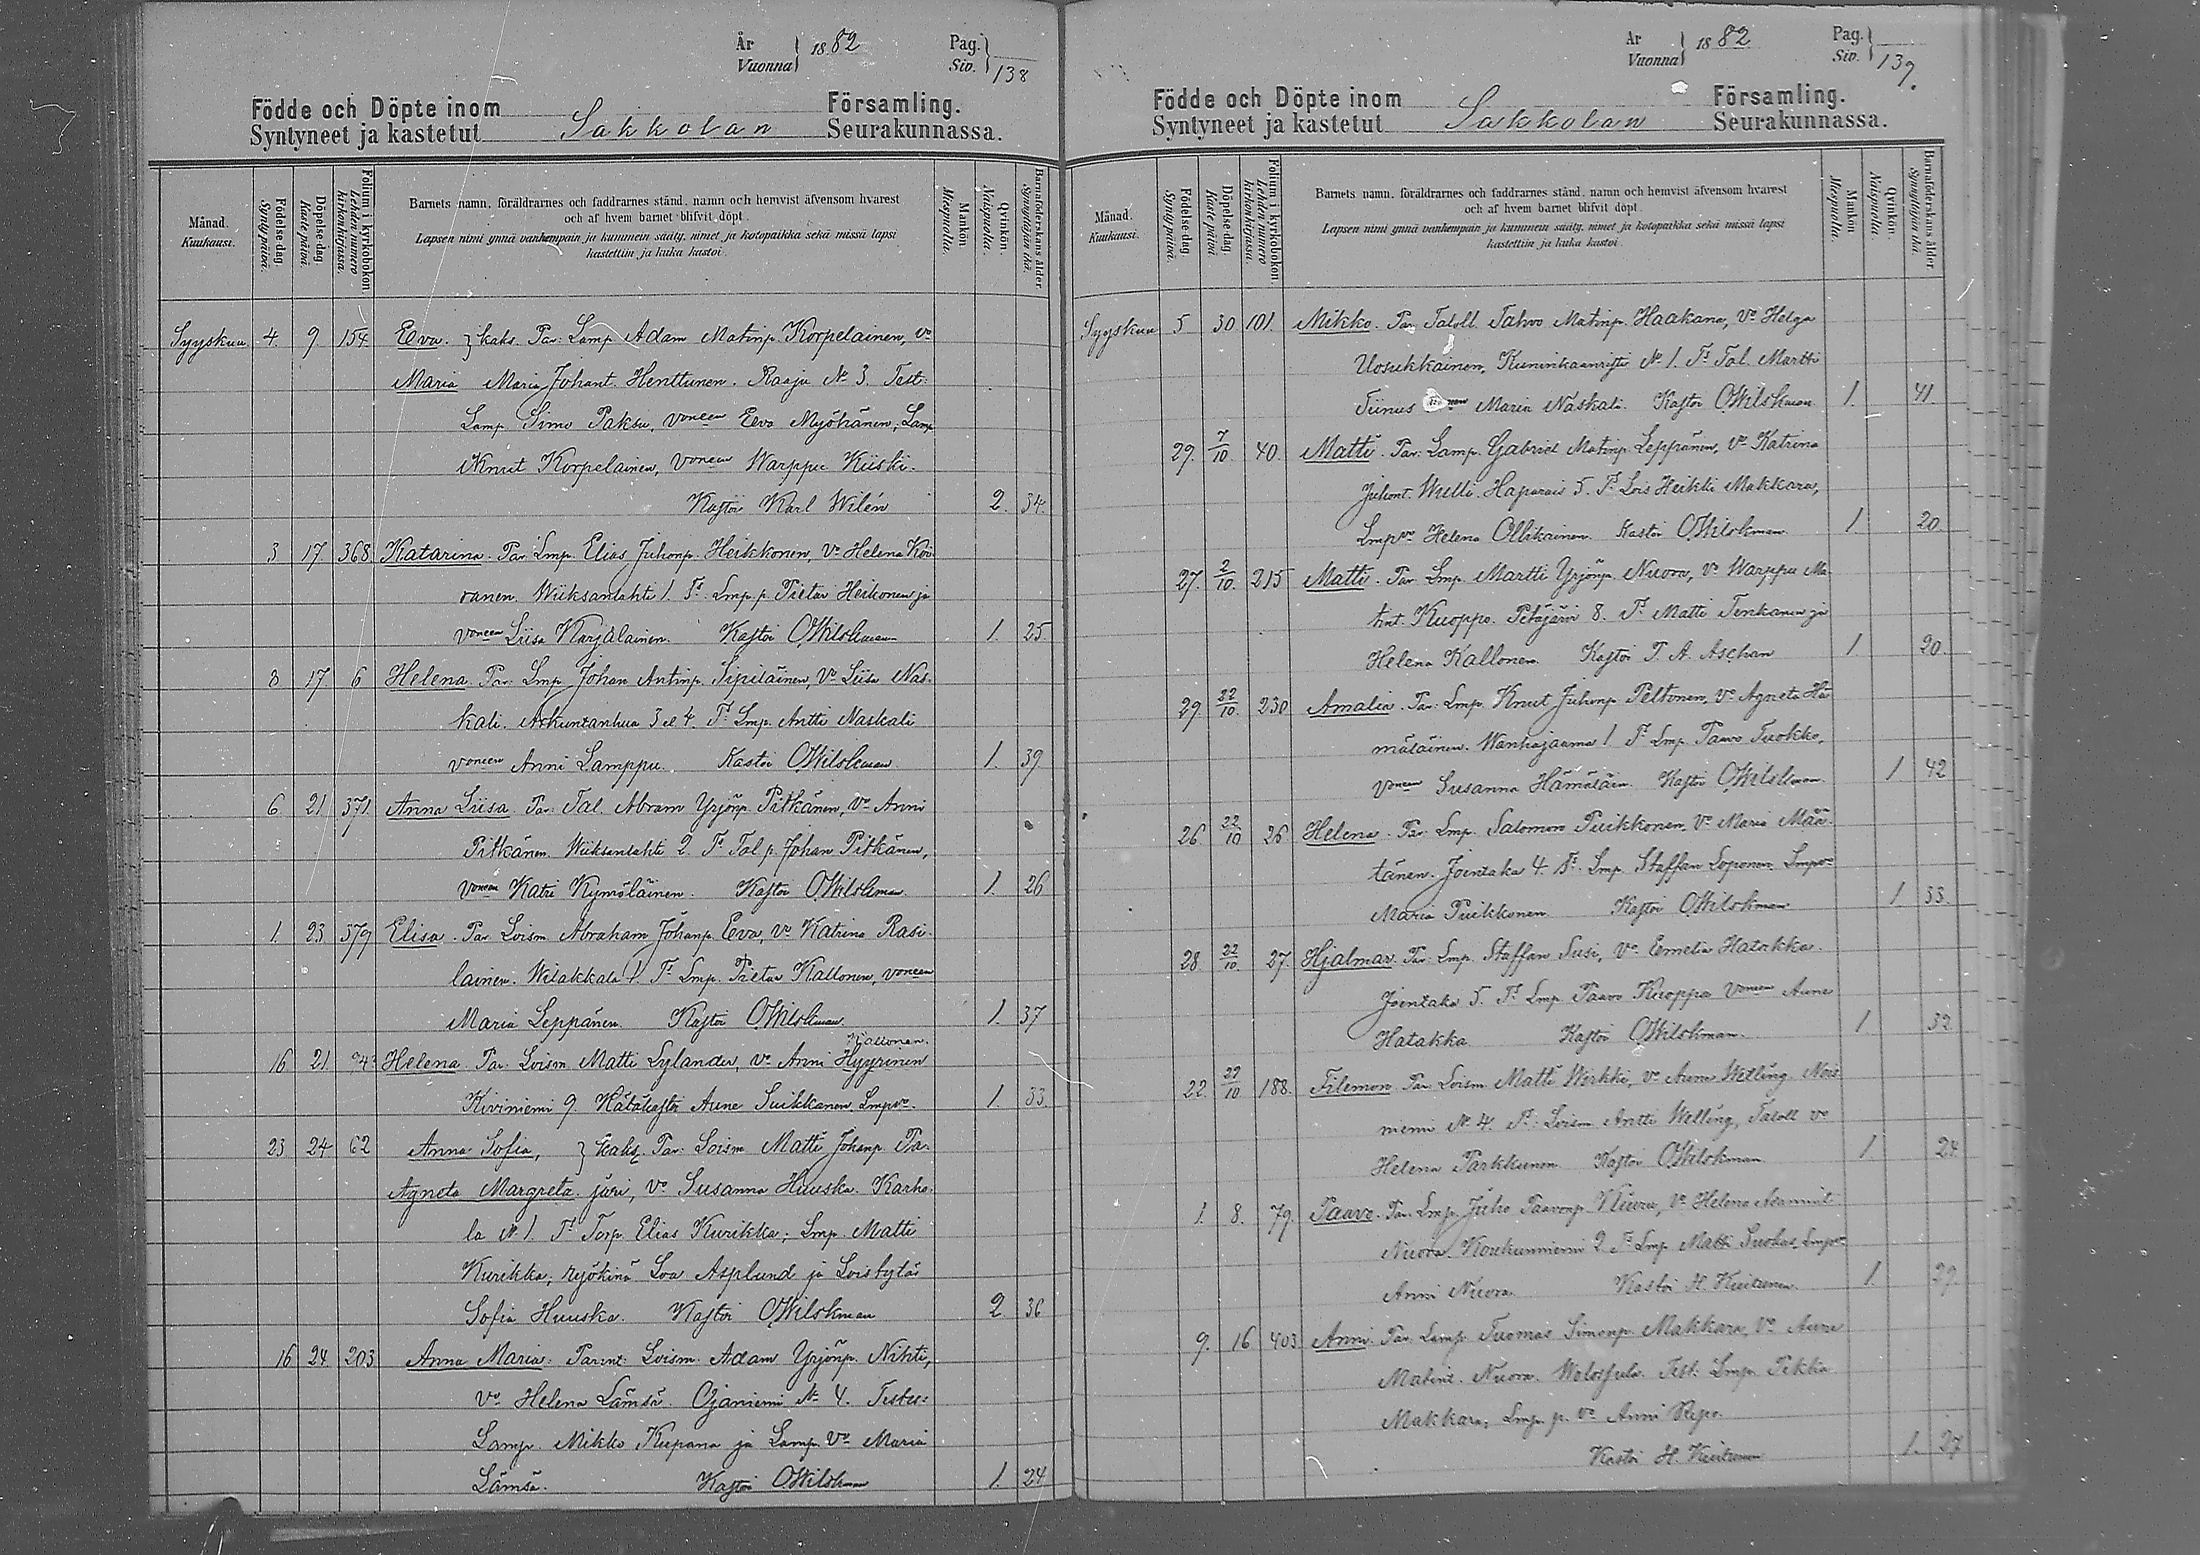 År
Vuonna } 1882
Pag.
Siv. } 138
Födde och Döpte inom
Syntyneet ja kastetut Sakkolan
Församling.
Seurakunnassa.
Månad.
Kuukausi.
Födelsedag.
Syntypäivä.
Döpelsedag.
Kastepäivä.
Folium i kyrkoboken.
Lehden numero kirkonkirjassa.
Barnets namn, föräldrarnes och faddrarnes stånd, namn och hemvist äfvensom hvarest
och af hvem barnet blifvit döpt.
Lapsen nimi ynnä vanhempain ja kummein sääty, nimet ja kotopaikka sekä missä lapsi
kastettiin ja kuka kastoi.
Mankön.
Miespuolia.
Qvinkön.
Naispuolia.
Barnaföderskans ålder.
Synnyttäjän ikä.
Syyskuu 4. 9 154 Eva. } kaks. Par: Lamp Adam Matinp. Korpelainen, Vo
Maria Maria Johant. Henttunen. Raaju No 3. Test:
Lamp Simo Paksu, Voneen Eeva Myöhänen, Lamp
Knut Korpelainen, Voneen Warppu Kiiski.
Kastoi Karl Wilén 2. 34.
3 17 368 Katarina. Par: Lmp. Elias Juhonp. Heikkonen, Vo Helena Kor
ranen. Wiiksanlahti 1. Ts. Lmp. p. Pietar Heikonen ja
Voneen Liisa Karjalainen. Kastoi O Wilskman 1. 25
8 17 6 Helena. Par: Lmp. Johan Antinp. Sipiläinen, Vo Liisa Nas-
kali. Arkuntanhua 3 el 4. Ts. Lmp. Antti Naskali
Voneen Anni Lamppu. Kastoi O Wilskman 1. 39
6 21 371 Anna Liisa. Par: Tal. Abram Yrjönp. Pitkänen, Vo Anni
Pitkänen. Wiiksanlahti 2. Ts Tal p. Johan Pitkänen,
Voneen Katri Kymäläinen. Kastoi O Wilskman. 1. 26
1. 23 379 Elisa. Par. Loism. Abraham Johanp. Eva, Vo Katrina Rasi-
lainen. Wilakkala 1. Ts. Lmp. Pietar Kallonen, Voneen
Maria Leppänen. Kastoi O Wilskman. 1. 37
Kallonen.
16 21. Helena. Par. Loism. Matti Sylander, Vo Anni Hyyrinen
Kiviniemi 9. Hätäkastoi Aune Suikkanen Lmp vo. 1. 33.
23 24 62 Anna Sofia, } Kaks. Par: Loism Matti Johanp. Pa-
Agneta Margreta. juri, Vo Susanna Huuska. Karho-
la No 1. Ts Torp. Elias Kurikka; Lmp. Matti
Kurikka, Lou Asplund ja Loistytär
Sofia Huuska. Kastoi O Wilskman 2 36
16 24 203 Anna Maria. Parent: Loism. Adam Yrjönp. Nihti,
Vo Helena Lämsä. Ojaniemi No 4. Testes:
Lamp. Mikko Kupana ja Lamp. Vo Maria
Lämsä. Kastoi O Wilskman 1. 24
År
Vuonna } 1882
Pag.
Siv. } 139.
Födde och Döpte inom
Syntyneet ja kastetut Sakkolan
Församling.
Seurakunnassa.
Månad.
Kuukausi.
Födelsedag.
Syntypäivä.
Döpelsedag.
Kastepäivä.
Folium i kyrkoboken.
Lehden numero kirkonkirjassa.
Barnets namn, föräldrarnes och faddrarnes stånd, namn och hemvist äfvensom hvarest
och af hvem barnet blifvit döpt.
Lapsen nimi ynnä vanhempain ja kummein sääty, nimet ja kotopaikka sekä missä lapsi
kastettiin ja kuka kastoi.
Mankön.
Miespuolia.
Qvinkön.
Naispuolia.
Barnaföderskans ålder.
Synnyttäjän ikä.
Syyskuu 5 30 101. Mikko. Par. Taloll. Tahvo Matinp. Haakana, Vo Helga
Uosukkainen, Kuninkaanristi No 1. Ts Tal. Martti
Tiinus Maria Naskali. Kastoi O Wilskman 1. 41.
29. 7/10. 40. Matti. Par: Lamp. Gabriel Matinp. Leppänen, Vo Katrina
Juhont. Welli. Haparais 5. Ts Lois Heikki Makkara,
Lmp vo Helena Ollikainen. Kastoi O Wilskman 1. 20
27. 2/10. 215 Matti. Par Lmp. Martti Yrjönp. Nuora, Vo Warppu Ma-
tint. Kuoppa. Petäjärvi 8. Ts Matti Tenkanen ja
Helena Kallonen. Kastoi T. A. Aschan 1 20.
29. 22/10. 230 Amalia. Par: Lmp. Knut Juhonp Peltonen, Vo Agneta Hä-
mäläinen. Wanhajaama 1 Ts Lmp Paavo Tuokko,
Voneen Susanna Hämäläin. Kastoi O Wilskman 1 42
26 22/10 26 Helena. Par: Lmp. Salomon Puikkonen, Vo Maria Mää-
tänen. Joentaka 4. Ts. Lmp. Staffan Loponen Lmp vo
Maria Puikkonen Kastoi O Wilskman 1 33.
28 22/10. 27. Hjalmar. Par: Lmp. Staffan Susi, Vo Emelia Hatakka.
Joentaka 5. Ts Lmp Paavo Kuoppa Voneen Aune
Hatakka. Kastoi O Wilskman. 1 32
22. 29/10 188. Filemon. Par Loism Matti Wirkki, Vo Anna Welling. Nois
niemi No 4. Ts: Loism. Antti Welling, Taloll vo
Helena Parkkunen. Kastoi O Wilskman 1 24
1. 8. 79. Paavo. Par. Lmp. Juho Paavonp. Kiuru, Vo Helena Adamint.
Nuora. Koukunniemi 2 Ts Lmp Matti Suokas, Lmp vo
Anni Nuora. Kastoi H. Kiukunen 1 29.
9. 16 403 Anni. Par. Lamp Tuomas Simonp. Makkara, Vo Anna
Matint. Nuora. Walosula. Test: Lmp. Pekka
Makkara, Lmp. p. vo Anni Repo.
Kastoi H. Kiukunen 1. 27